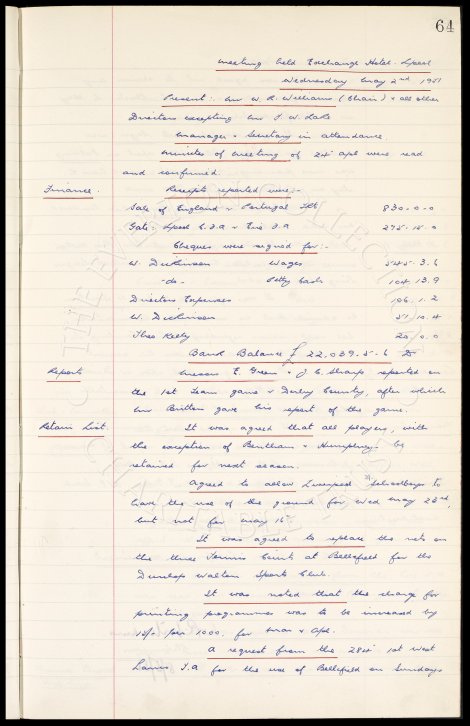 64
Meeting held Exchange Hotel. Lpool
Wednesday May 2nd 1951
Present: Mr W. R. Williams (Chair) & all other
Directors excepting Mr J. W.
Manager & Secretary in attendance
Minutes of Meeting of 24th Apl were read
and confirmed.
Finance.
Receipts reported were:-
Sale of England v Portugal Tkts 830-0-0
Gate: Lpool C.F.A v F.A 275-15-0
Cheques were signed for:-
W. Dickinson Wages 545.3.6
-do- Petty Cash 104.13.9
Directors Expenses 106.1.2
W. Dickinson 51.10.4
Theo Kelly 20.0.0
Bank Balance £22,039-5-6
Reports
Messrs E. Green & J. C. Sharp reported on
the 1st Team game v Derby County, after which
Mr Britton gave his report of the game.
Retain List.
It was agreed that all players, with
the exception of Bentham & Humphreys be
retained for next season.
Agreed to allow Liverpool Schoolboys to
have the use of the ground for Wed May 23rd,
but not for May 15
It was agreed to replace the nets on
the three Tennis Courts at Bellefield for the
Dunlop Walton Sports Club.
It was noted that the charge for
printing programmes was to be increased by
per 1000, for Mar & Apl.
A request from the 284th 1st West
Lancs for the use of Bellefield on Sundays